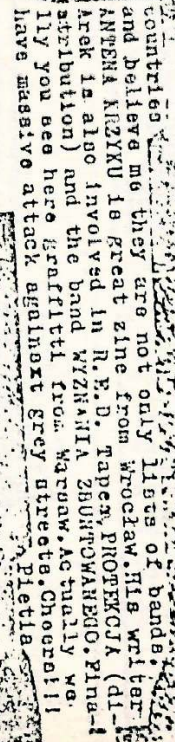 countries
and believe me they are not only lists of bands.
ANTENA KRZYKU is great zine from Wrocław.His writer
Arek is also involved in R.E.D. Tapes, PROTEKCJA (di-
stribution) and the band WYZNANIA ZBUNTOWANEGO.Fina-
lly you see here graffitti from Warsaw.Actually we
have massive attack againsxt grey streets.Cheers!!!
Pietia